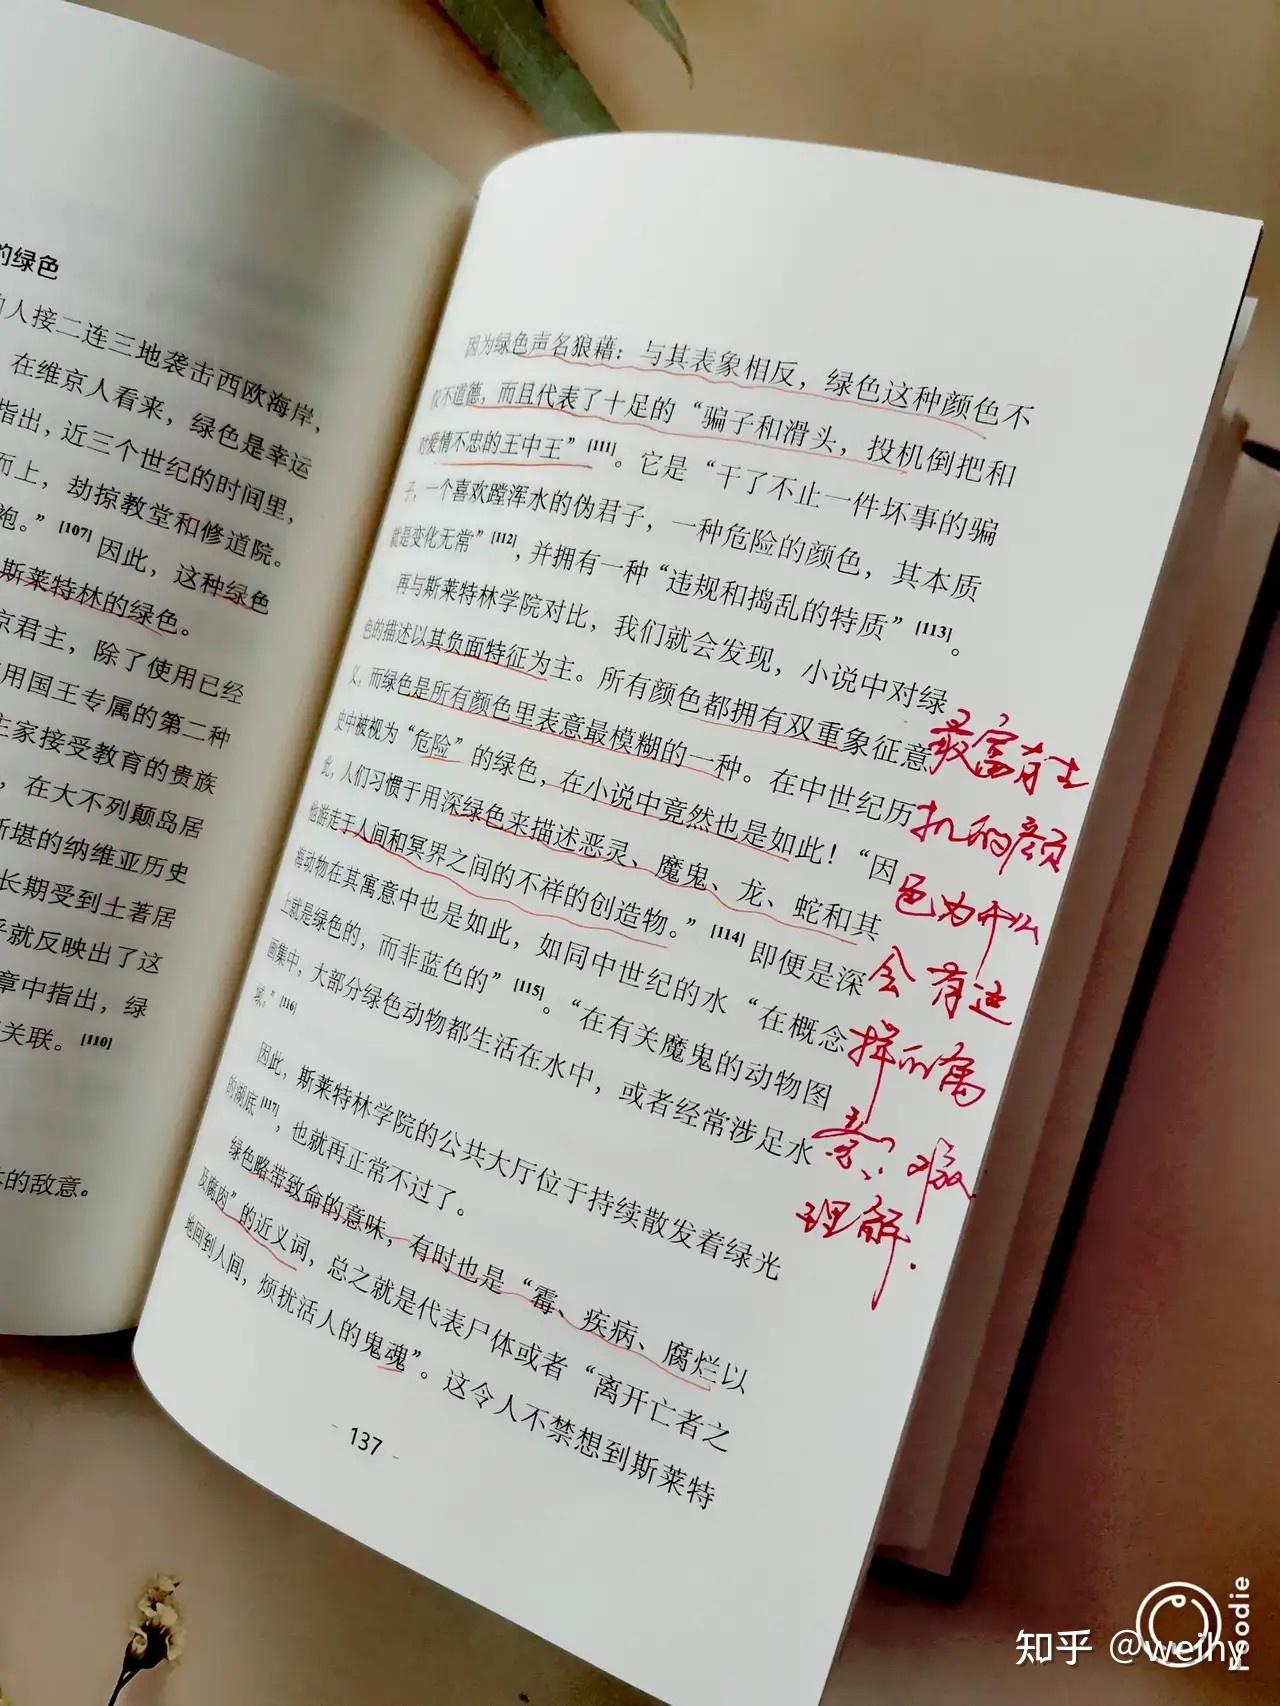 的绿色
人接二连三地袭击西欧海岸，
在维京人看来，绿色是幸运
指出，近三个世纪的时间里，
而上，劫掠教堂和修道院。
袍。”[107]因此，这种绿色
斯莱特林的绿色。
京君主，除了使用已经
用国王专属的第二种
主家接受教育的贵族
，在大不列颠岛居
斯堪的纳维亚历史
长期受到土著居
乎就反映出了这
章中指出，绿
关联。[110]
的敌意。
因为绿色声名狼藉：与其表象相反，绿色这种颜色不
仅不道德，而且代表了十足的“骗子和滑头，投机倒把和
对爱情不忠的王中王”[111]。它是“干了不止一件坏事的骗
子，一个喜欢蹚浑水的伪君子，一种危险的颜色，其本质
就是变化无常”[112]，并拥有一种“违规和捣乱的特质”[113]。
再与斯莱特林学院对比，我们就会发现，小说中对绿
色的描述以其负面特征为主。所有颜色都拥有双重象征意
义，而绿色是所有颜色里表意最模糊的一种。在中世纪历
史中被视为“危险”的绿色，在小说中竟然也是如此！“因
此，人们习惯于用深绿色来描述恶灵、魔鬼、龙、蛇和其
他游走于人间和冥界之间的不祥的创造物。”[114]即便是深
海动物在其寓意中也是如此，如同中世纪的水“在概念
上就是绿色的，而非蓝色的”[115]。“在有关魔鬼的动物图
画集中，大部分绿色动物都生活在水中，或者经常涉足水
域。”[116]
因此，斯莱特林学院的公共大厅位于持续散发着绿光
的湖底[117]，也就再正常不过了。
绿色略带致命的意味，有时也是“霉、疾病、腐烂以
及腐肉”的近义词，总之就是代表尸体或者“离开亡者之
地回到人间，烦扰活人的鬼魂”。这令人不禁想到斯莱特
- 137 -
最富有生
机的颜
色为什么
会有这
样的寓
意？难
理解.
知乎 @weihy
Foodie